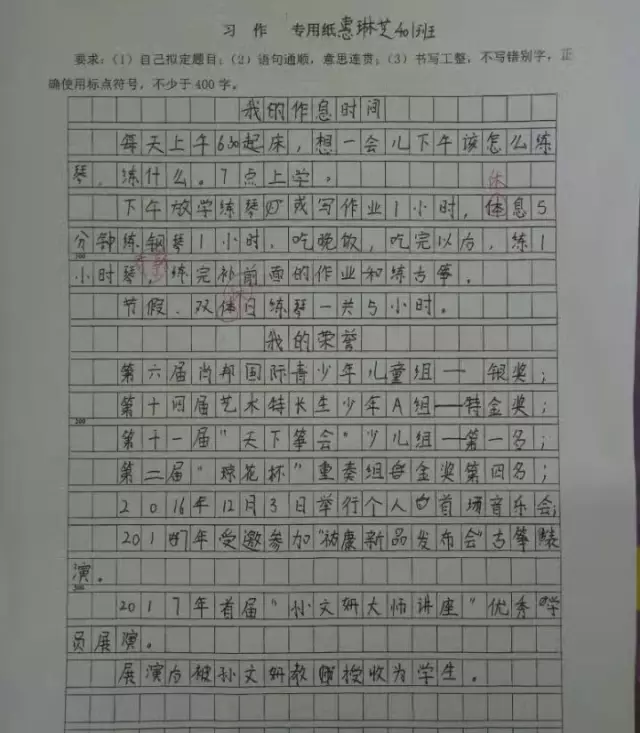 习 作 专用纸惠琳芝401班
要求:(1)自己拟定题目;(2)语句通顺,意思连贯;(3)书写工整,不写错别字,正
确使用标点符号,不少于400字。
我的作息时间
每天上午6:30起床,想一会儿下午该怎么练
琴,练什么。7点上学。
休
下午放学练琴或写作业1小时,体息5
分钟练钢琴1小时,吃晚饭,吃完以后,练1
小时琴,练完补前面的作业和练古筝。
节假、双休日练琴一共5小时。
我的荣誉
第六届肖邦国际青少年儿童组——银奖;
第十四届艺术特长生少年A组——特金奖;
第十一届"天下筝会"少儿组—第一名;
第二届"琼花杯"重奏组金奖第四名;
2016年12月3日举行个人首场音乐会;
2017年受邀参加"祐康新品发布会"古筝表
演。
2017年首届"孙文妍大师讲座"优秀学
员展演。
展演后被孙文妍教授收为学生。
100
200
300